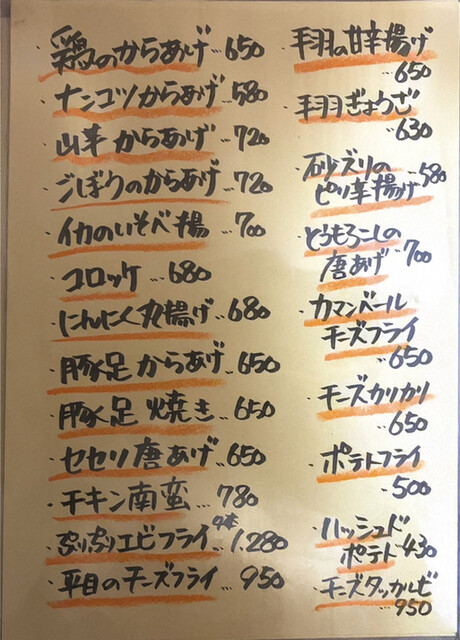 ・鶏のからあげ…650
・ナンコツからあげ…580
・山芋からあげ…720
・ごぼうのからあげ…720
・イカのいそべ揚…700
・コロッケ…680
・にんにく丸揚げ…680
・豚足からあげ…650
・豚足焼き…650
・セセリ唐あげ…650
・チキン南蛮…780
・ぷりぷりエビフライ4本…1.280
・平目のチーズフライ…950
・手羽の甘辛揚げ
…650
・手羽ぎょうざ
…630
・砂ズリの
ピリ辛揚げ…580
・とうもろこしの
唐あげ…700
・カマンベール
チーズフライ
…650
・チーズカリカリ
…650
・ポテトフライ
…500
・ハッシュド
ポテト430
・チーズタッカルビ
…950